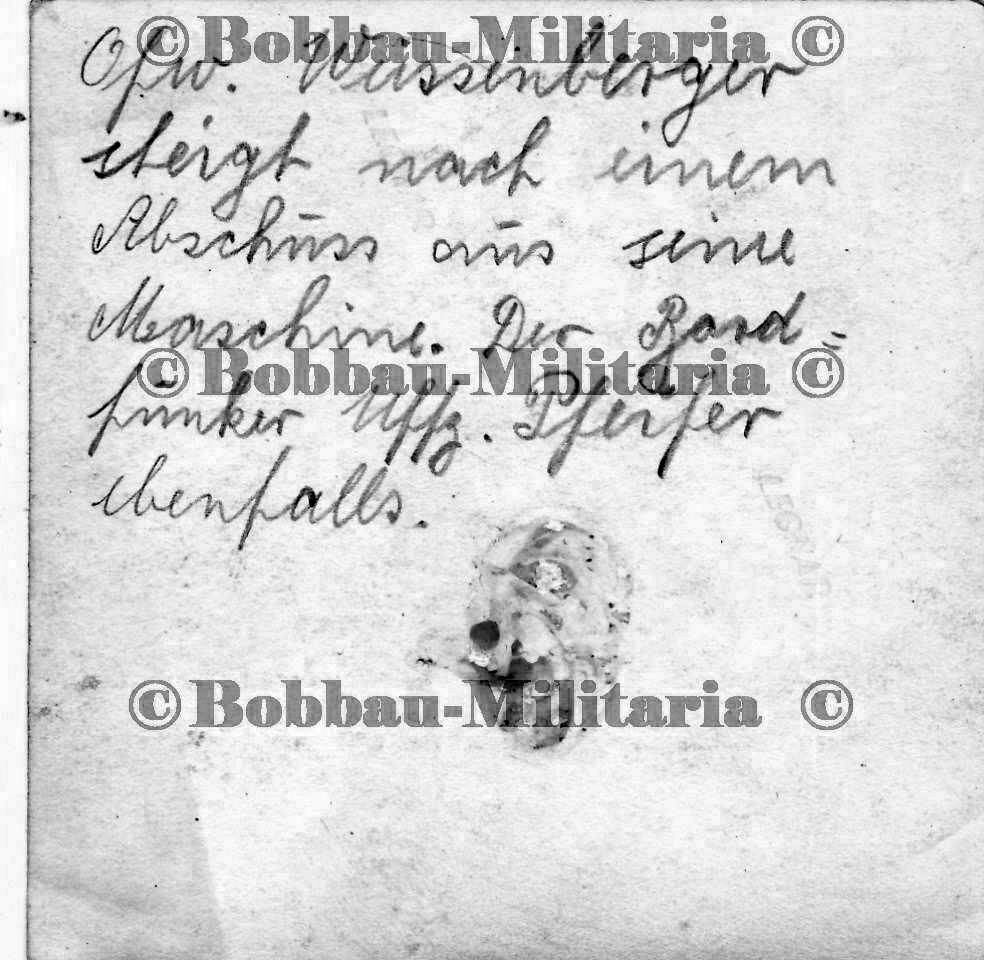 © Bobbau-Militaria ©
Ofw. Weissenberger
steigt nach einem
Abschuss aus seine
Maschine. Der Bord=
© Bobbau-Militaria ©
funker Uffz. Pfeifer
ebenfalls.
© Bobbau-Militaria ©